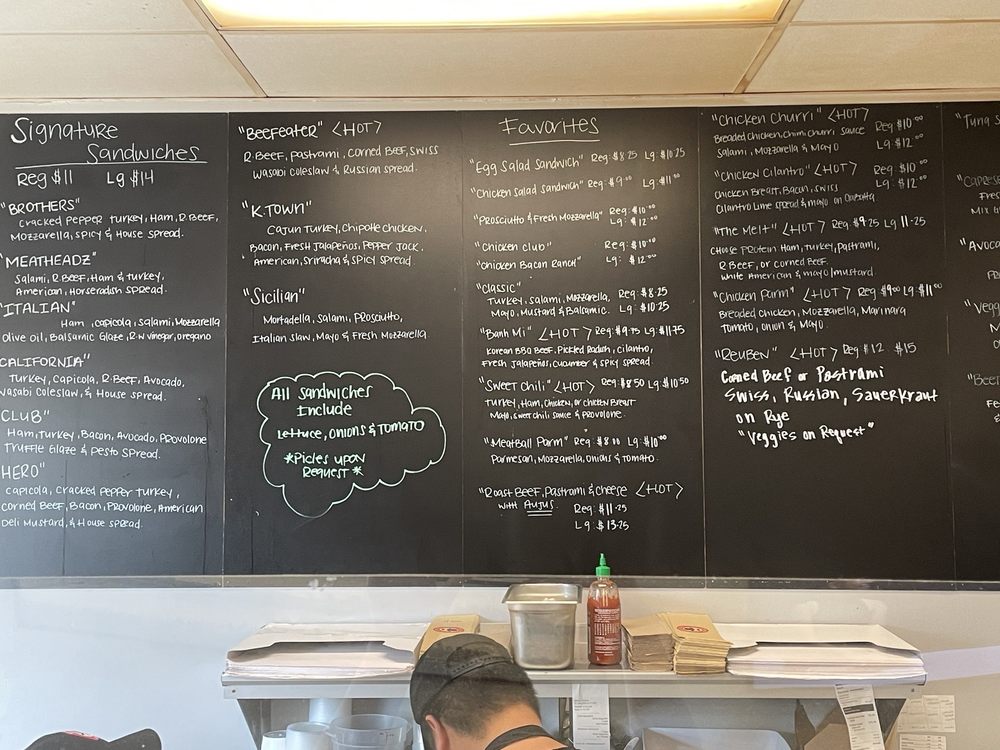 Signature
Sandwiches
Reg $11 Lg $14
"BROTHERS"
Cracked Pepper Turkey, Ham, R.Beef,
Mozzarella, Spicy & House Spread.
"MEATHEADZ"
Salami, R.Beef, Ham & Turkey,
American, Horseradish Spread.
"ITALIAN"
Ham, Capicola, Salami, Mozzarella
Olive oil, Balsamic Glaze, R.W vinegar, oregano
CALIFORNIA"
Turkey, Capicola, R.Beef, Avocado,
Wasabi Coleslaw, & House Spread.
CLUB"
Ham, Turkey, Bacon, Avocado, Provolone
Truffle Glaze & Pesto Spread.
HERO"
Capicola, Cracked Pepper Turkey,
Corned Beef, Bacon, Provolone, American
Deli Mustard, & House Spread.
"Beefeater" <HOT>
R.Beef, Pastrami, Corned Beef, Swiss
Wasabi Coleslaw & Russian Spread.
"K.Town"
Cajun Turkey, Chipotle Chicken,
Bacon, Fresh Jalapeños, Pepper Jack,
American, Sriracha & Spicy Spread.
"Sicilian"
Mortadella, Salami, Prosciutto,
Italian Slaw, Mayo & Fresh Mozzarella
All Sandwiches
Include
Lettuce, Onions & Tomato
*Picles upon
Request*
Favorites
"Egg Salad Sandwich" Reg $8.25 Lg $10.25
"Chicken Salad Sandwich" Reg: $9.00 Lg: $11.00
"Prosciutto & Fresh Mozzarella" Reg: $10.00
Lg: $12.00
"Chicken Club" Reg: $10.00
"Chicken Bacon Ranch" Lg: $12.00
"Classic"
Turkey, Salami, Mozzarella, Reg: $8.25
Mayo, Mustard & Balsamic. Lg: $10.25
"Banh Mi" <HOT> Reg: $9.75 Lg: $11.75
Korean BBQ Beef, Pickled Radish, Cilantro,
Fresh Jalapeños, Cucumber & Spicy Spread.
"Sweet Chili" <HOT> Reg $8.50 Lg 10.50
Turkey, Ham, Chicken, or Chicken Breast
Mayo, Sweet Chili Sauce & Provolone.
"Meatball Parm" Reg: $8.00 Lg: $10.00
Parmesan, Mozzarella, Onions & Tomato.
"Roast Beef, Pastrami & Cheese <HOT>
With Aujus. Reg: $11.25
Lg: $13.25
"Chicken Churri" <HOT>
Breaded Chicken, Chimi Churri Sauce Reg $10.00
Salami, Mozzarella & Mayo Lg: $12.00
"Chicken Cilantro" <HOT> Reg $10.00
Chicken Breast, Bacon, Swiss Lg: $12.00
Cilantro Lime Spread & Mayo on Ciabatta
"The Melt" <HOT> Reg $9.25 Lg 11.25
Choose Protein Ham, Turkey, Pastrami,
R.Beef, or Corned Beef.
White American & Mayo/Mustard
"Chicken Parm" <HOT> Reg $9.00 Lg $11.00
Breaded Chicken, Mozzarella, Marinara
Tomato, Onion & Mayo
"Reuben" <HOT> Reg $12 $15
Corned Beef or Pastrami
Swiss, Russian, Sauerkraut
on Rye
"Veggies on Request"
"Tuna S
"Caprese
Fres
Mix
"Avoca
"Vegg
"Beef
Fe